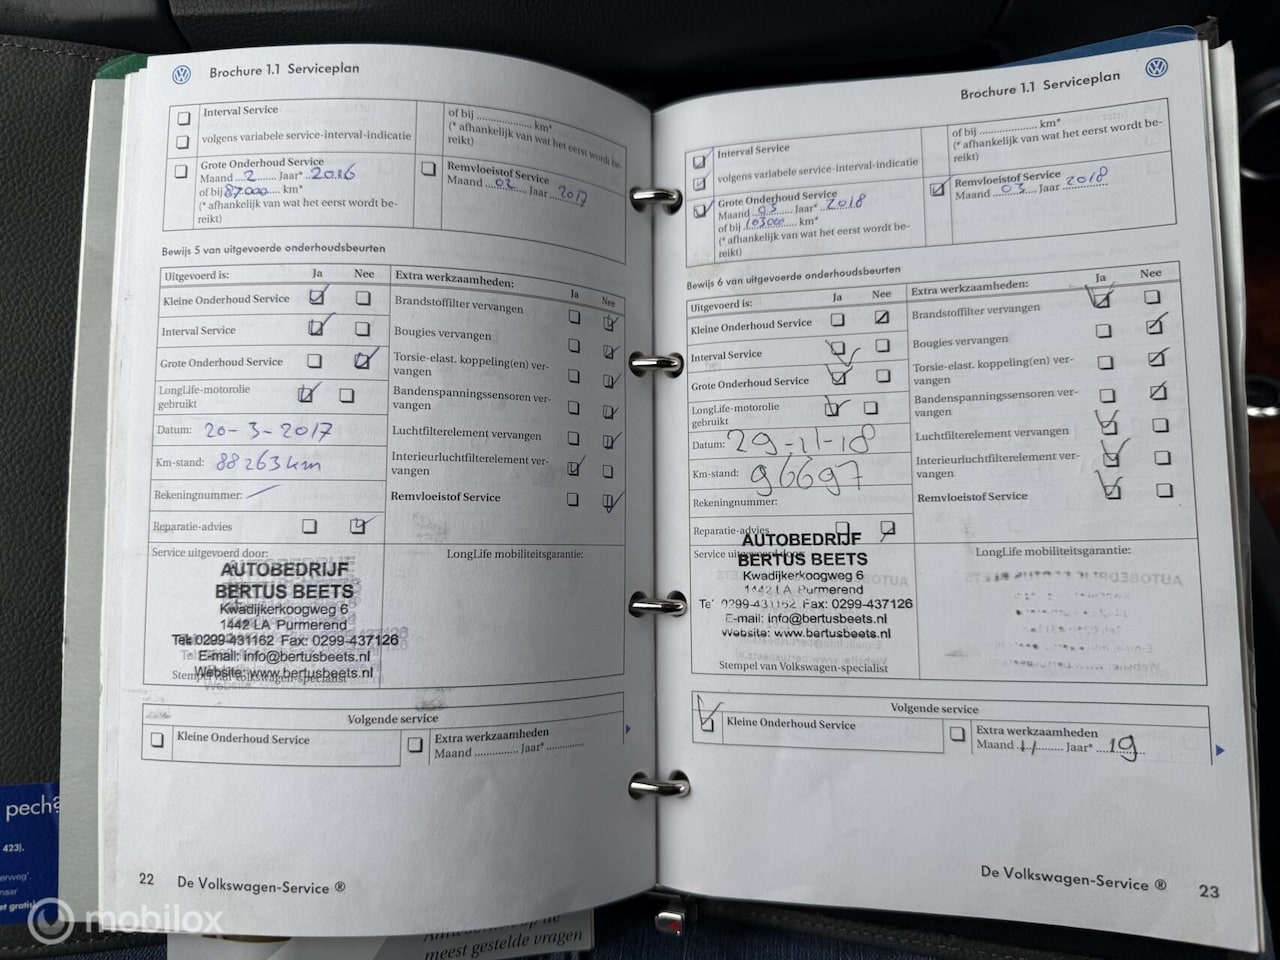 Brochure 1.1 Serviceplan
Interval Service
volgens variabele service-interval-indicatie
of bij .................... km*
(* afhankelijk van wat het eerst wordt be-
reikt)
Grote Onderhoud Service
Maand ..2...... Jaar* .2016
of bij 87.000.... km*
(* afhankelijk van wat het eerst wordt be-
reikt)
Remvloeistof Service
Maand ..02.... Jaar ..2017
Bewijs 5 van uitgevoerde onderhoudsbeurten
Uitgevoerd is: Ja Nee
Kleine Onderhoud Service
Interval Service
Grote Onderhoud Service
LongLife-motorolie
gebruikt
Datum: 20-3-2017
Km-stand: 88263km
Rekeningnummer:
Reparatie-advies
Extra werkzaamheden: Ja Nee
Brandstoffilter vervangen
Bougies vervangen
Torsie-elast. koppeling(en) ver-
vangen
Bandenspanningssensoren ver-
vangen
Luchtfilterelement vervangen
Interieurluchtfilterelement ver-
vangen
Remvloeistof Service
Service uitgevoerd door:
AUTOBEDRIJF
BERTUS BEETS
Kwadijkerkoogweg 6
1442 LA Purmerend
Tel: 0299-431162 Fax: 0299-437126
E-mail: info@bertusbeets.nl
Website: www.bertusbeets.nl
Stempel van Volkswagen-specialist
LongLife mobiliteitsgarantie:
Volgende service
Kleine Onderhoud Service
Extra werkzaamheden
Maand ............. Jaar* ............
22 De Volkswagen-Service ®
Brochure 1.1 Serviceplan
Interval Service
volgens variabele service-interval-indicatie
of bij .................... km*
(* afhankelijk van wat het eerst wordt be-
reikt)
Grote Onderhoud Service
Maand ..03.... Jaar* ..2018
of bij 103000.... km*
(* afhankelijk van wat het eerst wordt be-
reikt)
Remvloeistof Service
Maand ..03.... Jaar ..2018
Bewijs 6 van uitgevoerde onderhoudsbeurten
Uitgevoerd is: Ja Nee
Kleine Onderhoud Service
Interval Service
Grote Onderhoud Service
LongLife-motorolie
gebruikt
Datum: 29-11-18
Km-stand: 96697
Rekeningnummer:
Reparatie-advies
Extra werkzaamheden: Ja Nee
Brandstoffilter vervangen
Bougies vervangen
Torsie-elast. koppeling(en) ver-
vangen
Bandenspanningssensoren ver-
vangen
Luchtfilterelement vervangen
Interieurluchtfilterelement ver-
vangen
Remvloeistof Service
AUTOBEDRIJF
BERTUS BEETS
Kwadijkerkoogweg 6
1442 LA Purmerend
Tel 0299-431162 Fax: 0299-437126
E-mail: info@bertusbeets.nl
Website: www.bertusbeets.nl
Stempel van Volkswagen-specialist
LongLife mobiliteitsgarantie:
Volgende service
Kleine Onderhoud Service
Extra werkzaamheden
Maand ..11........ Jaar* ..19
De Volkswagen-Service ® 23
pech?
423).
erweg'.
naar
et gratis
meest gestelde vragen
mobilox